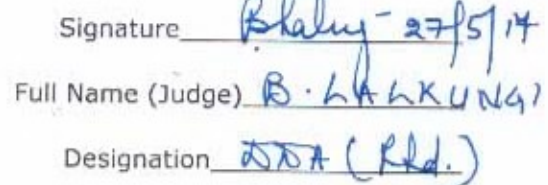 Signature 27/5/14
Full Name (Judge) B. LALKUNGI
Designation DDA (Rtd.)